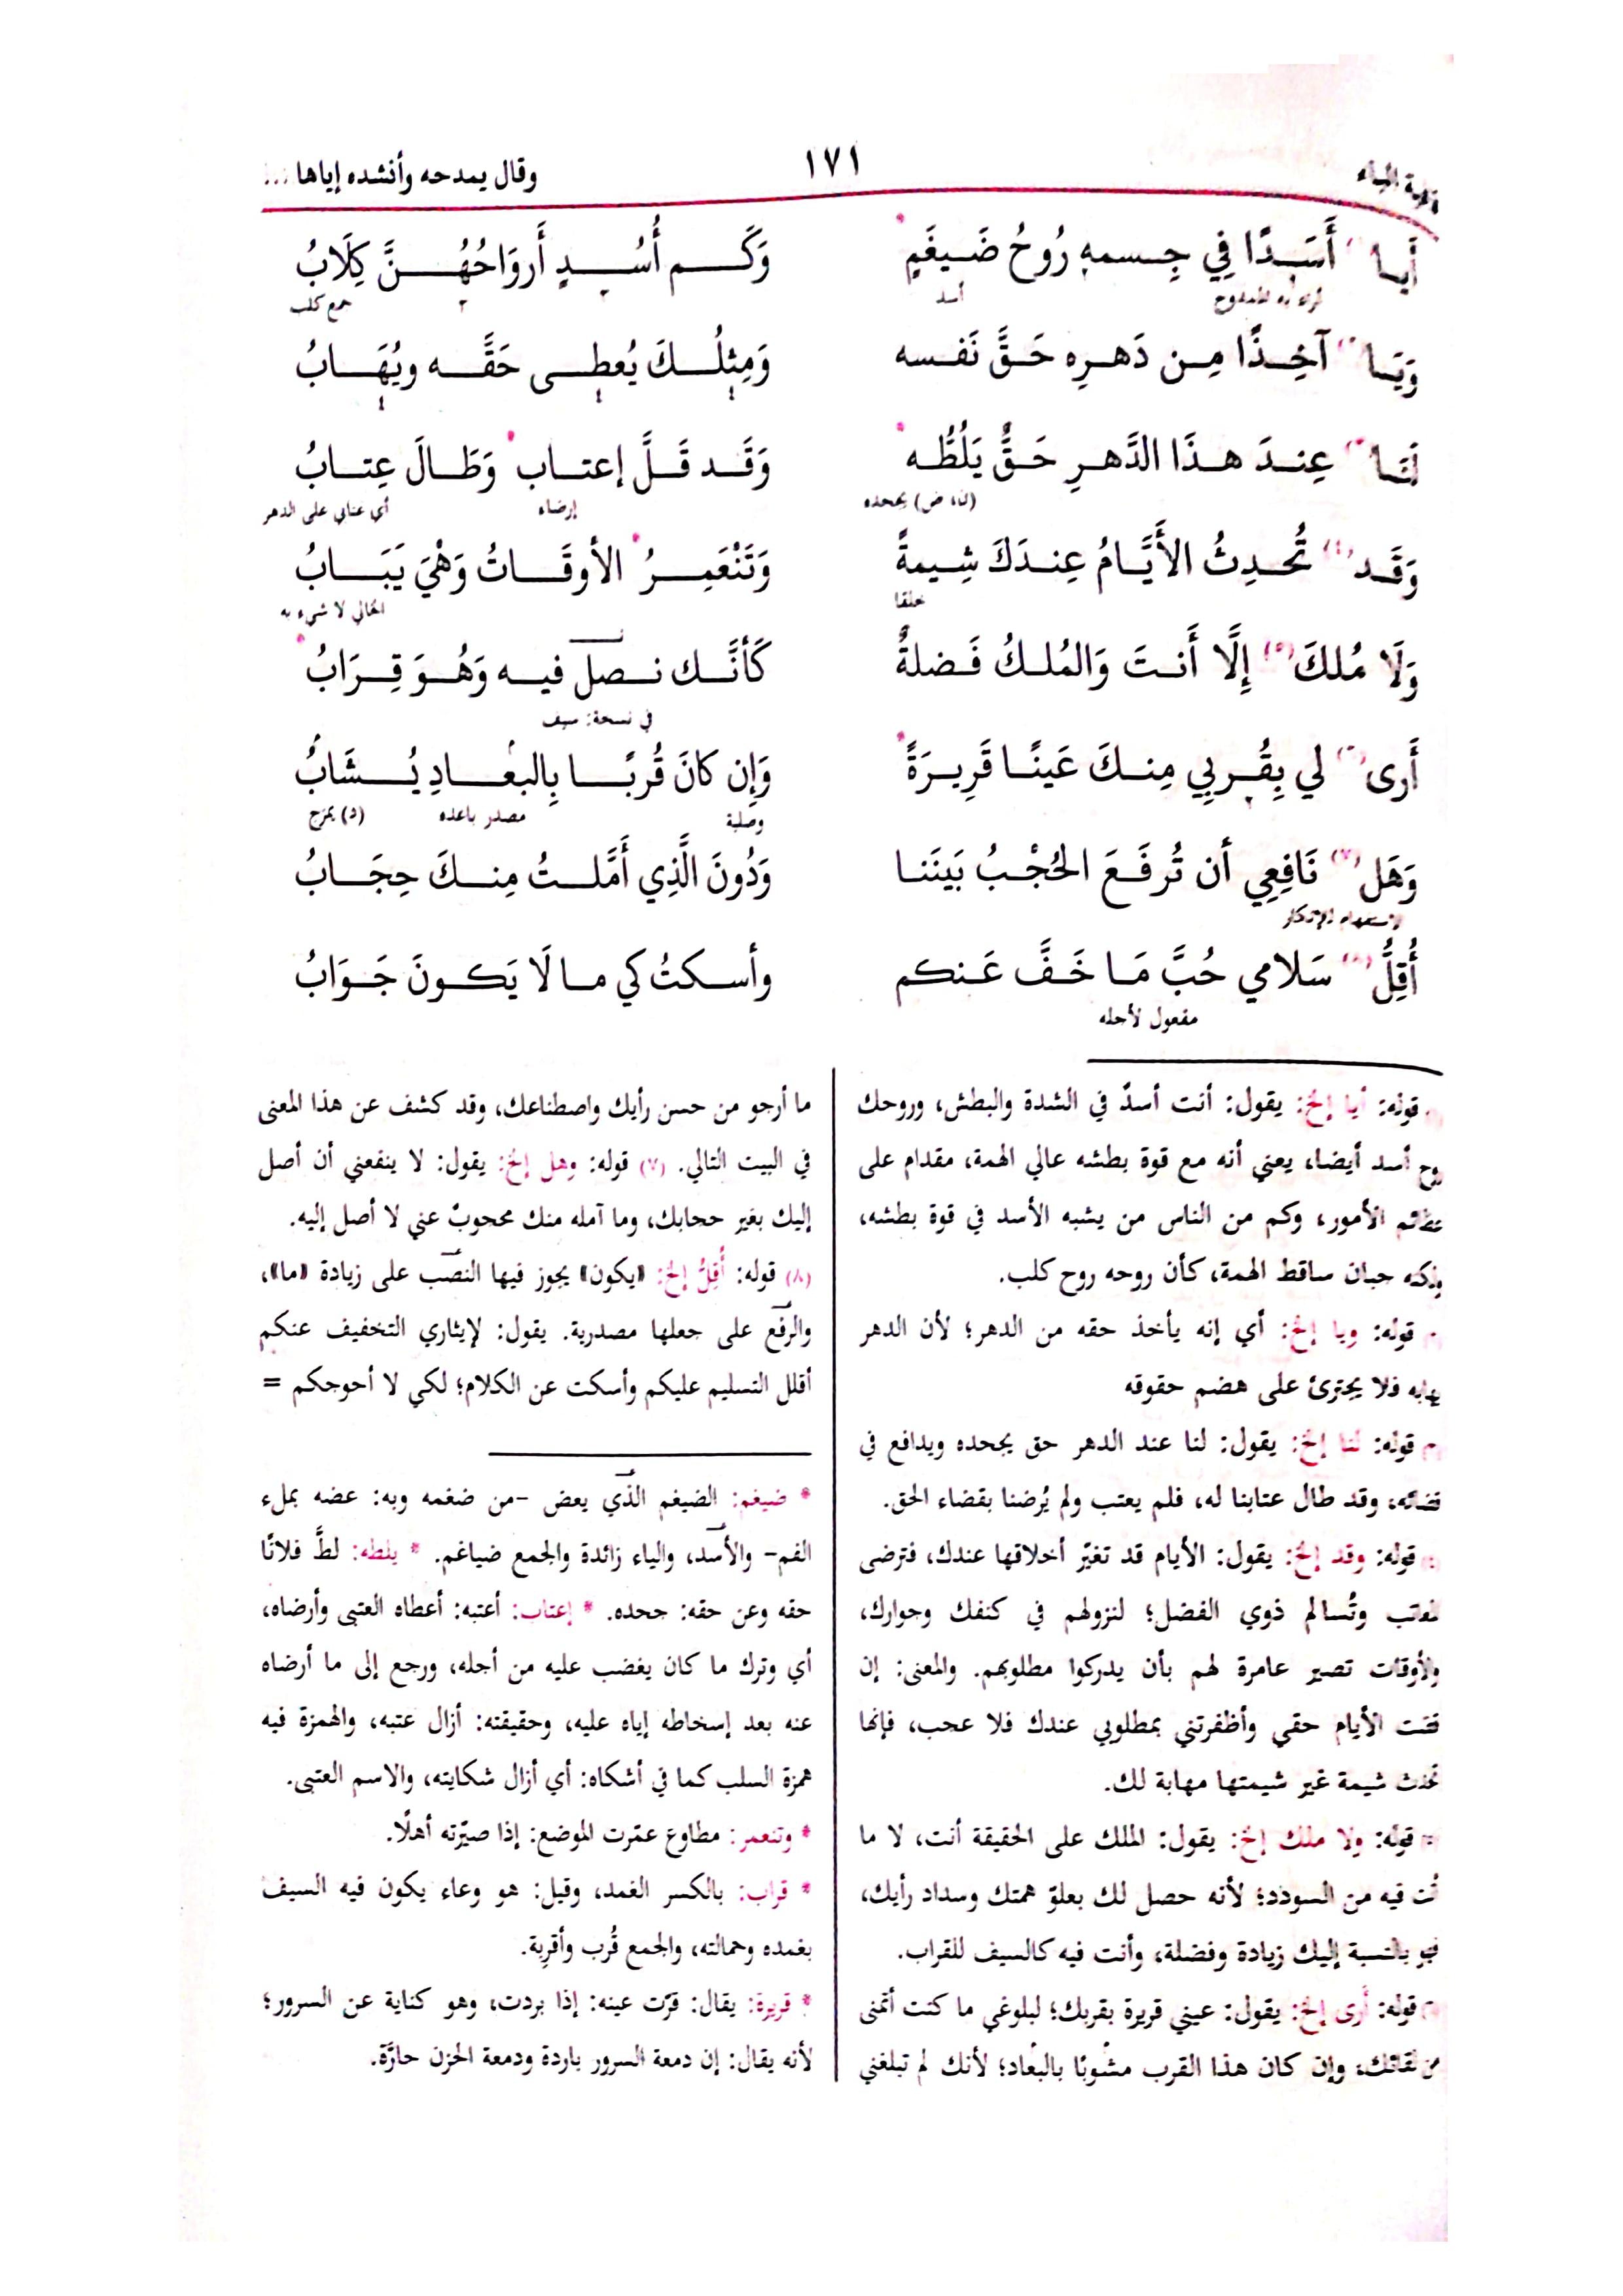 قافية الباء ١٧١ وقال يمدحه وأنشده إياها ...
أَيا أَسَدًا فِي جِسمهِ رُوحُ ضَيغَمٍ * وَكَم أُسُدٍ أَروَاحُهُنَّ كِلَابُ
أسد جمع كلب
وَيَا آخِذًا مِن دَهرِه حَقَّ نَفسه وَمِثلُكَ يُعطى حَقَّه ويُهَابُ
لَنَا عِندَ هذَا الدَّهرِ حَقٌّ يَلُطُّه * وَقَد قَلَّ إعتاب * وَطَالَ عِتابُ
(ن، ض) يجحده إرضاء أي عتابي على الدهر
وَقَد (٤) تُحدِثُ الأَيَّامُ عِندَكَ شِيمةً وَتَنْعَمِرُ * الأوقَاتُ وَهْيَ يَبَابُ
خلقا الخالي لا شيء به
وَلَا مُلكَ (٥) إِلَّا أَنتَ وَالمُلكُ فَضلةٌ كَأنَّك نصل فيه وَهُوَ قِرَابُ *
في نسخة: سيف
أَرى لي بِقُربِي مِنكَ عَينًا قَرِيرَةً * وَإِن كانَ قُربًا بِالبعادِ يُشَابُ
وصلية مصدر باعده (ن) يمزج
وَهَل (٧) نَافِعِي أن تُرفَعَ الحُجْبُ بَينَنا وَدُونَ الَّذِي أَمَّلتُ مِنكَ حِجَابُ
الاستفهام للإنكار
أُقِلُّ (٨) سَلامي حُبَّ مَا خَفَّ عَنكم وأسكتُ كي ما لَا يَكونَ جَوَابُ
مفعول لأجله
قوله: أيا إلخ: يقول: أنت أسدٌ في الشدة والبطش، وروحك
روح أسد أيضا، يعني أنه مع قوة بطشه عالي الهمة، مقدام على
عظائم الأمور، وكم من الناس من يشبه الأسد في قوة بطشه،
ولكنه جبان ساقط الهمة، كأن روحه روح كلب.
قوله: ويا إلخ: أي إنه يأخذ حقه من الدهر؛ لأن الدهر
يهابه فلا يجترئ على هضم حقوقه
قوله: لنا إلخ: يقول: لنا عند الدهر حق يجحده ويدافع في
قضائه، وقد طال عتابنا له، فلم يعتب ولم يُرضنا بقضاء الحق.
قوله: وقد إلخ: يقول: الأيام قد تغيّر أخلاقها عندك، فترضى
وتُسالم ذوي الفضل؛ لنزولهم في كنفك وجوارك،
والأوقات تصير عامرة لهم بأن يدركوا مطلوبهم. والمعنى: إن
قضت الأيام حقي وأظفرتني بمطلوبي عندك فلا عجب، فإنها
تحدث شيمة غير شيمتها مهابة لك.
قوله: ولا ملك إلخ: يقول: الملك على الحقيقة أنت، لا ما
أنت فيه من السودد؛ لأنه حصل لك بعلوّ همتك وسداد رأيك،
فهو بالنسبة إليك زيادة وفضلة، وأنت فيه كالسيف للقراب.
قوله: أرى إلخ: يقول: عيني قريرة بقربك؛ لبلوغي ما كنت أتمنى
من لقائك، وإن كان هذا القرب مشوبًا بالبعاد؛ لأنك لم تبلغني
ما أرجو من حسن رأيك واصطناعك، وقد كشف عن هذا المعنى
في البيت التالي. (٧) قوله: وهل إلخ: يقول: لا ينفعني أن أصل
إليك بغير حجابك، وما آمله منك محجوبٌ عني لا أصل إليه.
(٨) قوله: أُقِلُّ إلخ: «يكون» يجوز فيها النصب على زيادة «ما»،
والرفع على جعلها مصدرية. يقول: لإيثاري التخفيف عنكم
أقلل التسليم عليكم وأسكت عن الكلام؛ لكي لا أحوجكم =
* ضيغم: الضيغم الذي يعض -من ضغمه وبه: عضه بملء
الفم- والأسد، والياء زائدة والجمع ضياغم. * يلطه: لطَّ فلانًا
حقه وعن حقه: جحده. * إعتاب: أعتبه: أعطاه العتبى وأرضاه،
أي وترك ما كان يغضب عليه من أجله، ورجع إلى ما أرضاه
عنه بعد إسخاطه إياه عليه، وحقيقته: أزال عتبه، والهمزة فيه
همزة السلب كما في أشكاه: أي أزال شكايته، والاسم العتبى.
* وتنعمر: مطاوع عمّرت الموضع: إذا صيّرته أهلًا.
* قراب: بالكسر الغمد، وقيل: هو وعاء يكون فيه السيف
بغمده وحمالته، والجمع قُرب وأقرِبة.
* قريرة: يقال: قرّت عينه: إذا بردت، وهو كناية عن السرور؛
لأنه يقال: إن دمعة السرور باردة ودمعة الحزن حارّة.